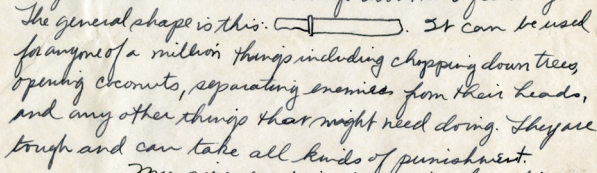 The general shape is this: . It can be used
for anyone of a million things including chopping down trees,
opening coconuts, separating enemies from their heads,
and any other things that might need doing. They are
tough and can take all kinds of punishment.